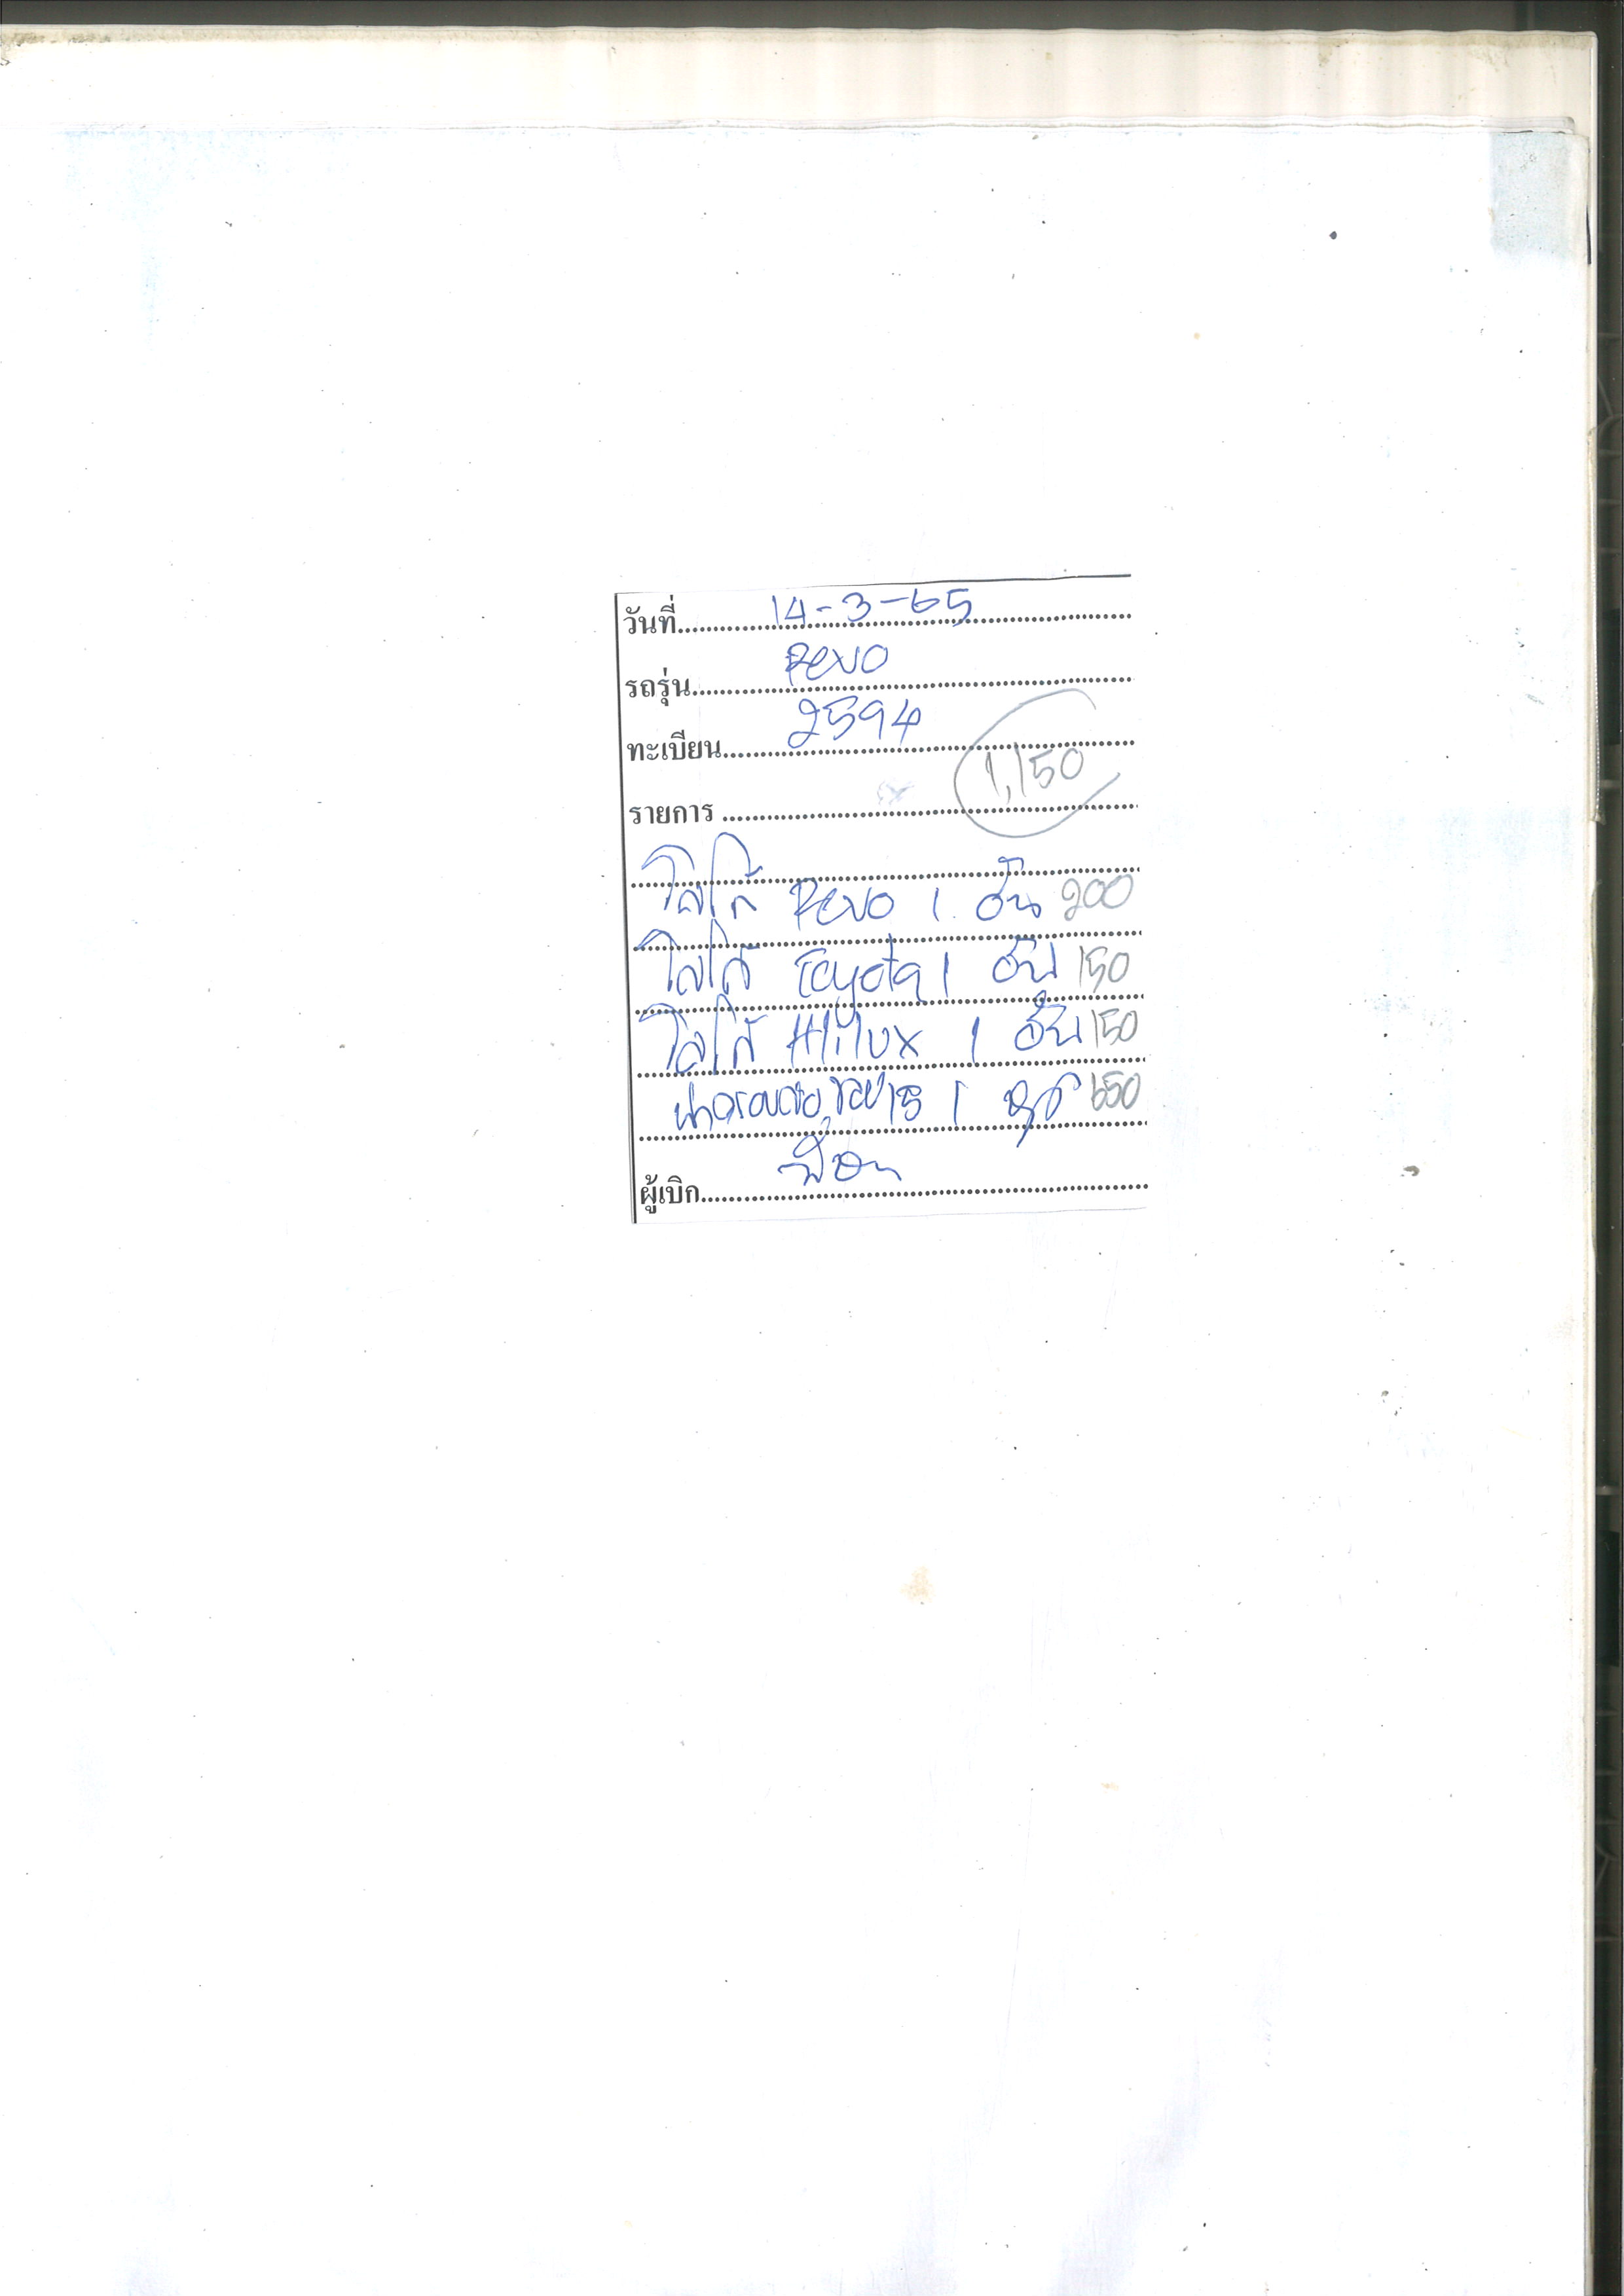 วันที่ 14-3-65
รถรุ่น Revo
ทะเบียน 2594
1,150
รายการ
โลโก้ Revo 1 อัน 200
โลโก้ Toyota 1 อัน 150
โลโก้ Hilux 1 อัน 150
1 ชุด 650
ผู้เบิก